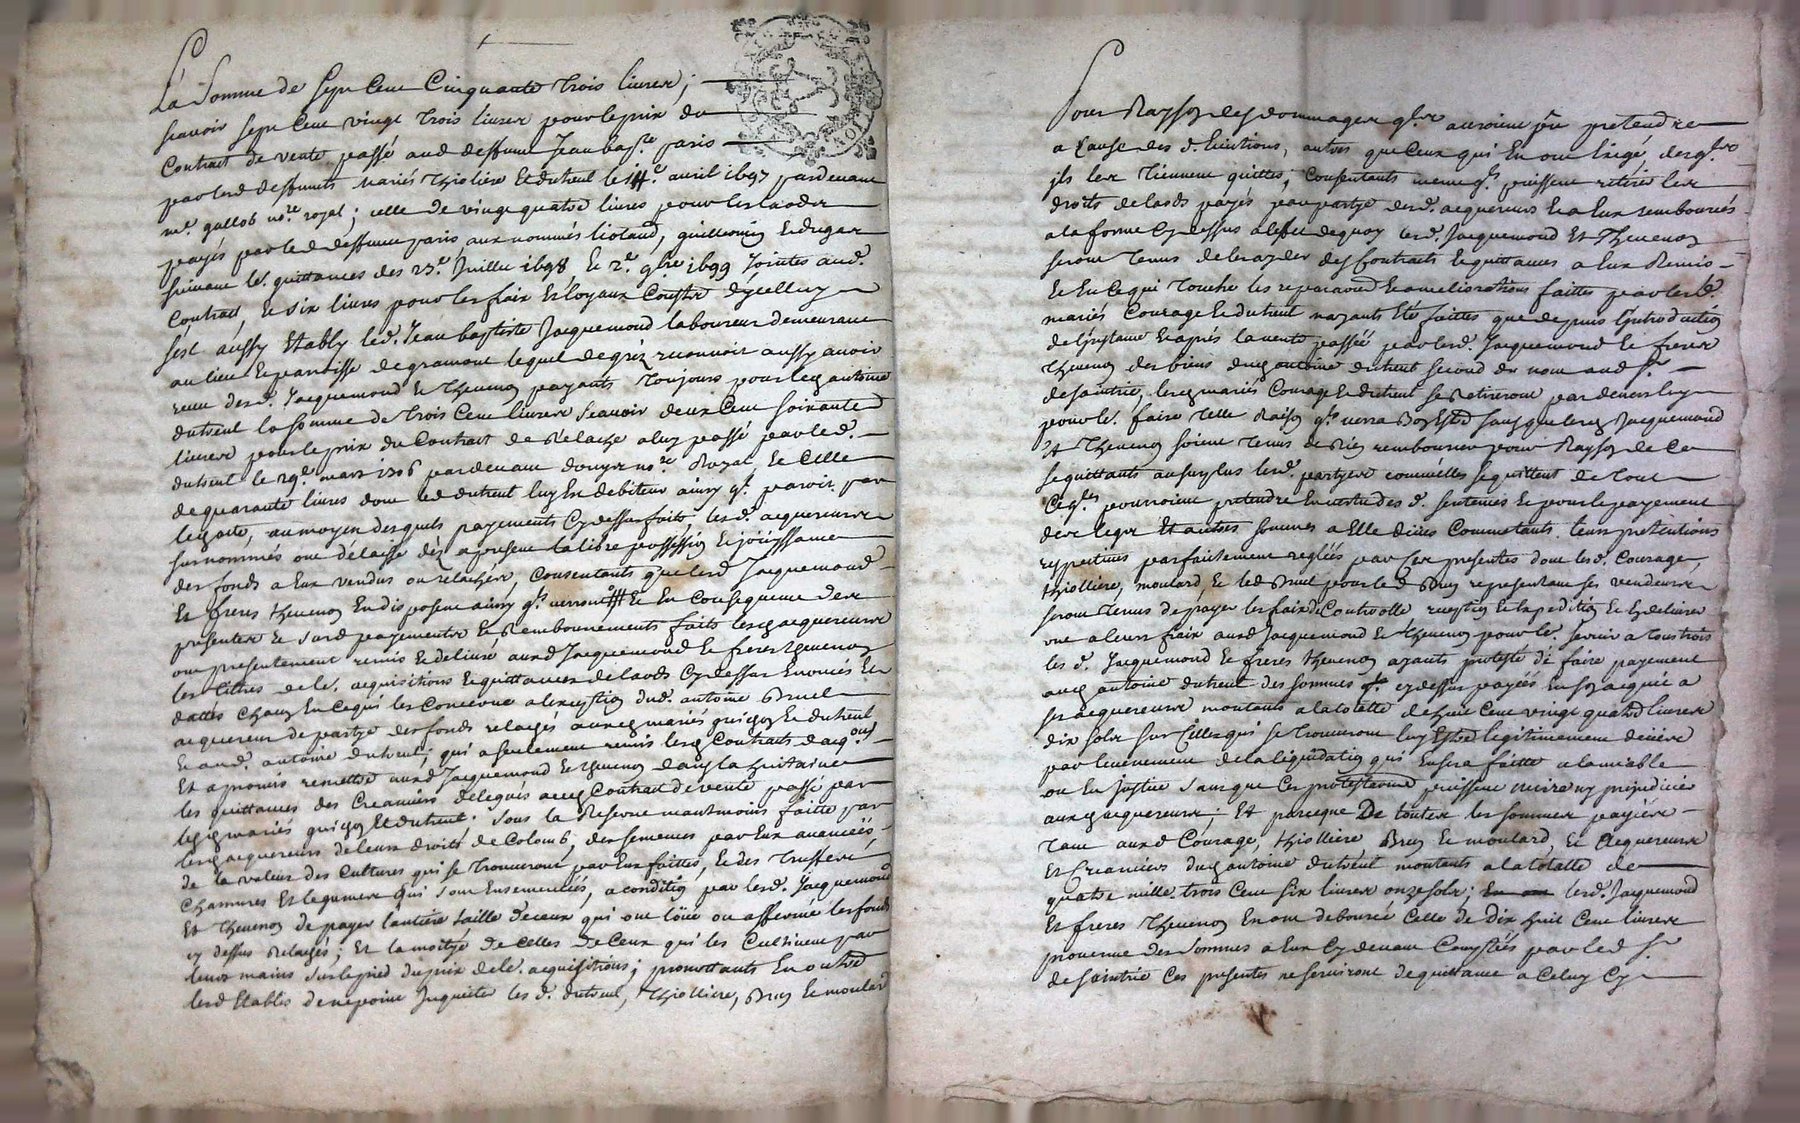 La somme de sept Cent Cinquante trois livres;
scavoir sept Cent vingt trois livres pour le prix du
Contract de vente passé aud deffunt Jean bap.te paris
par lesd deffunts mariés thioliere et dutreul le avril 1697 pardevant
m.e gallob no.re royal; celle de vingt quatre livres pour les laods
payés par led deffunt paris aux nommés liotaud, guillermin et
suivant les quittances des 23.e Juillet 1698 et 2.e 9bre 1699 Jointes aud.
Contract, et six livres pour les fraix et loyaux Cousts d'ycelluy
s'est aussy Etably led. Jean baptiste Jacquemond laboureur demeurant
au lieu et parroisse de gramont lequel de gréz reconnoit aussy avoir
receu desd. Jacquemond et thevenon payants toujours pour led antoine
dutreul la somme de trois Cent livres scavoir deux Cent soixante
livres pour le prix du Contract de relache a luy passé par led.
dutreul le 29.e mars 1706 pardevant no.re Royal, et Celle
de quarante livres dont led dutreul luy est debiteur ainsy q.l paroit par
au moyen desquels payements Cy dessus faits, lesd. acquereurs
surnommés ont delaissé déz a present la libre possession et joüyssance
des fonds a Eux vendus ou relachés, Consentants que lesd Jacquemond
Et freres thevenon En disposent ainsy q.ls verront Et En Consequence des
presentes et susd payements et Remboursements faits lesd acquereurs
ont presentement remis et delivré ausd Jacquemond et freres thevenon
les titres de le. acquisitions et quittances de laods Cy dessus Enoncés Et
dattés Chacun En Ce qui les Concerne a l'exception dud. antoine Bruel
acquereur de partye des fonds relachés auxd mariés et dutreul
Et aud. antoine dutreul; qui a seulement remis lesd Contracts d'acq.ons
Et a promis remettre ausd Jacquemond et thevenon dans la huitaine
les quittances des Creanciers delegués aud Contract de vente passé par
lesd mariés et dutreul. sous la Reserve neantmoins faitte par
lesd acquereurs de leurs droits de Colons, des semences par Eux avancées
de la valeur des Cultures qui se trouveront par Eux faittes, et des
Chanvres Et legumes qui sont Ensemencées, a condition par lesd. Jacquemond
Et thevenon de payer l'entiere taille de Ceux qui ont loüé ou affermé les fonds
cy dessus relachés; Et la moityé de Celles de Ceux qui les Cultivent par
leurs mains sur le pied du prix de le. acquisitions; promettants En outre
lesd Etablis de ne point Inquieter les d. dutreul, thiolliere, Brun et moulard
Pour Rayson des dommages q.ls auroint pû pretendre
a Cause des d. Evictions, autres que Ceux qui En ont Exigé, desq.ls
ils les tiennent quittes; Consentants meme q.ls puissent retirer les
droits de laods payés par partye desd. acquereurs Et a Eux remboursés
a la forme Cy dessus a l'effet de quoy lesd. Jacquemond Et thevenon
seront tenus de les ayder des Contracts et quittances a Eux Remis
Et En Ce qui touche les reparations et ameliorations faittes par lesd.
mariés Courage et dutreul n'ayants Eté faittes que depuis l'introduction
de l'instance Et aprés la vente passée par lesd. Jacquemond et freres
thevenon des biens dud antoine dutreul second du nom aud s.r
de saintrie, lesd mariés Courage et dutreul se retireront par devers luy
pour le. faire telle Raison q.l verra Bon Estre sans que lesd Jacquemond
Et thevenon soient tenus de Rien rembourser pour Rayson de Ce
se quittants au surplus lesd. partyes comm'elles se quittent de tout
Ce q.lles pourroint pretendre En vertu des d. sentences et pour le payement
des legs Et autres sommes a Elle deües Commettants. leurs pretentions
respectives parfaitement reglées par Ces presentes dont lesd. Courage,
thiolliere, moulard, et led Bruel pour led Brun representant ses vendeurs
seront tenus de payer les fraix de Controlle reception et Expedition et d'en delivrer
une a leurs fraix ausd Jacquemond et thevenon pour le. servir a tous trois
les d. Jacquemond et freres thevenon ayants protesté de faire payement
aud antoine dutreul des sommes cy dessus payées En son acquit a
ses acquereurs montants a la totalle de huit Cent vingt quatre livres
dix sols sur Celles qui se trouveront luy Estre legitimement deües
par l'evenement de la liquidation qui En sera faitte a l'amiable
ou En Justice sans que Ces protestations puissent nuire ny prejudicier
auxd acquereurs, Et parceque De toutes les sommes payées
tant auxd Courage, thiolliere Brun et moulard, et acquereurs
Et Creanciers dud antoine dutreul montants a la totalle de
quatre mille trois Cent six livres onze sols; lesd. Jacquemond
Et freres thevenon En ont deboursé Celle de Dix huit Cent livres
provenue des sommes a Eux Cy devant Comptées par led s.r
de saintrie Ces presentes ne serviront de quittance a Celuy Cy